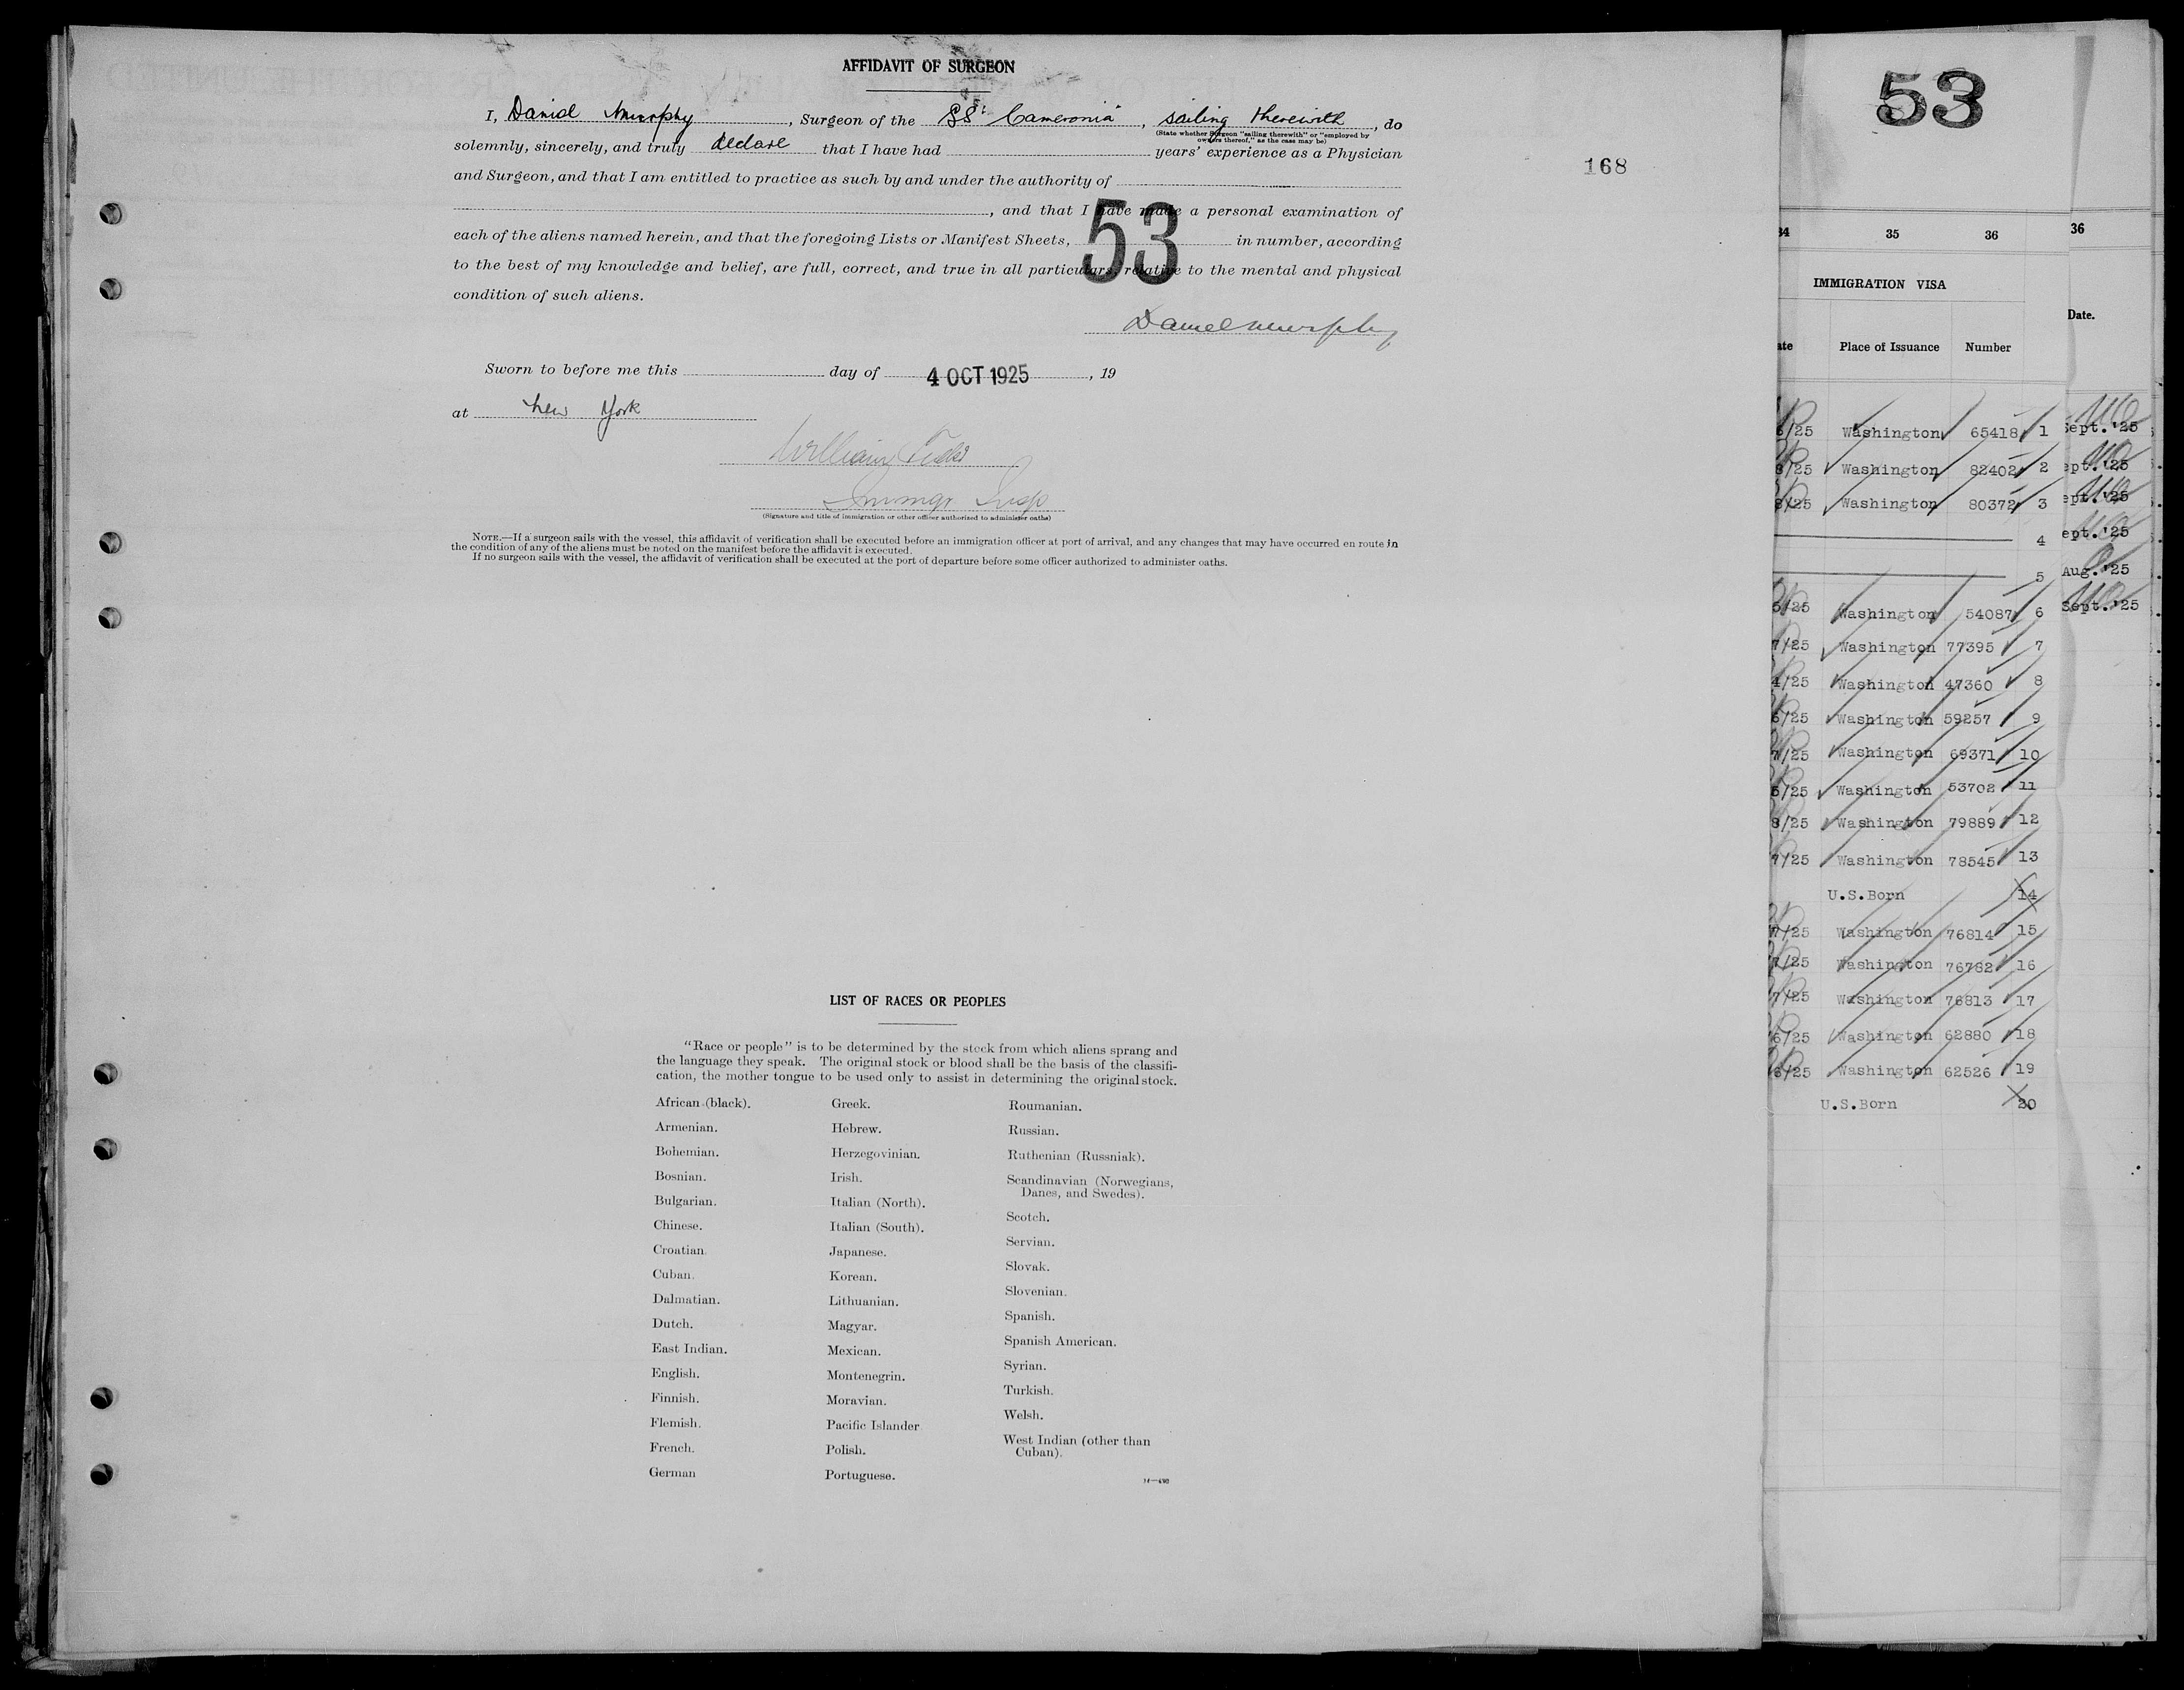 AFFIDAVIT OF SURGEON
I, Daniel Murphy, Surgeon of the SS "Cameronia", sailing therewith, do
(State whether Surgeon "sailing therewith" or "employed by
owners thereof," as the case may be)
solemnly, sincerely, and truly declare that I have had years' experience as a Physician
and Surgeon, and that I am entitled to practice as such by and under the authority of
, and that I have made a personal examination of
each of the aliens named herein, and that the foregoing Lists or Manifest Sheets, 53 in number, according
to the best of my knowledge and belief, are full, correct, and true in all particulars, relative to the mental and physical
condition of such aliens.
Daniel Murphy
Sworn to before me this day of 4 OCT 1925, 19
at New York
William
Immgr Insp
(Signature and title of immigration or other officer authorized to administer oaths)
NOTE.—If a surgeon sails with the vessel, this affidavit of verification shall be executed before an immigration officer at port of arrival, and any changes that may have occurred en route in
the condition of any of the aliens must be noted on the manifest before the affidavit is executed.
If no surgeon sails with the vessel, the affidavit of verification shall be executed at the port of departure before some officer authorized to administer oaths.
168
LIST OF RACES OR PEOPLES
"Race or people" is to be determined by the stock from which aliens sprang and
the language they speak. The original stock or blood shall be the basis of the classifi-
cation, the mother tongue to be used only to assist in determining the original stock.
African (black).
Armenian.
Bohemian.
Bosnian.
Bulgarian.
Chinese.
Croatian.
Cuban.
Dalmatian.
Dutch.
East Indian.
English.
Finnish.
Flemish.
French.
German
Greek.
Hebrew.
Herzegovinian.
Irish.
Italian (North).
Italian (South).
Japanese.
Korean.
Lithuanian.
Magyar.
Mexican.
Montenegrin.
Moravian.
Pacific Islander
Polish.
Portuguese.
Roumanian.
Russian.
Ruthenian (Russniak).
Scandinavian (Norwegians,
Danes, and Swedes).
Scotch.
Servian.
Slovak.
Slovenian.
Spanish.
Spanish American.
Syrian.
Turkish.
Welsh.
West Indian (other than
Cuban).
53
34 35 36
IMMIGRATION VISA
Place of Issuance Number
/25 Washington 65418 1
/25 Washington 82402 2
/25 Washington 80372 3
4
5
/25 Washington 54087 6
7/25 Washington 77395 7
4/25 Washington 47360 8
/25 Washington 59257 9
7/25 Washington 69371 10
5/25 Washington 53702 11
8/25 Washington 79889 12
7/25 Washington 78545 13
U.S.Born 14
7/25 Washington 76814 15
7/25 Washington 76782 16
7/25 Washington 76813 17
6/25 Washington 62880 18
/25 Washington 62526 19
U.S.Born 20
36
Date.
Sept.'25
ept.'25
ept.'25
ept.'25
Aug.'25
Sept.'25